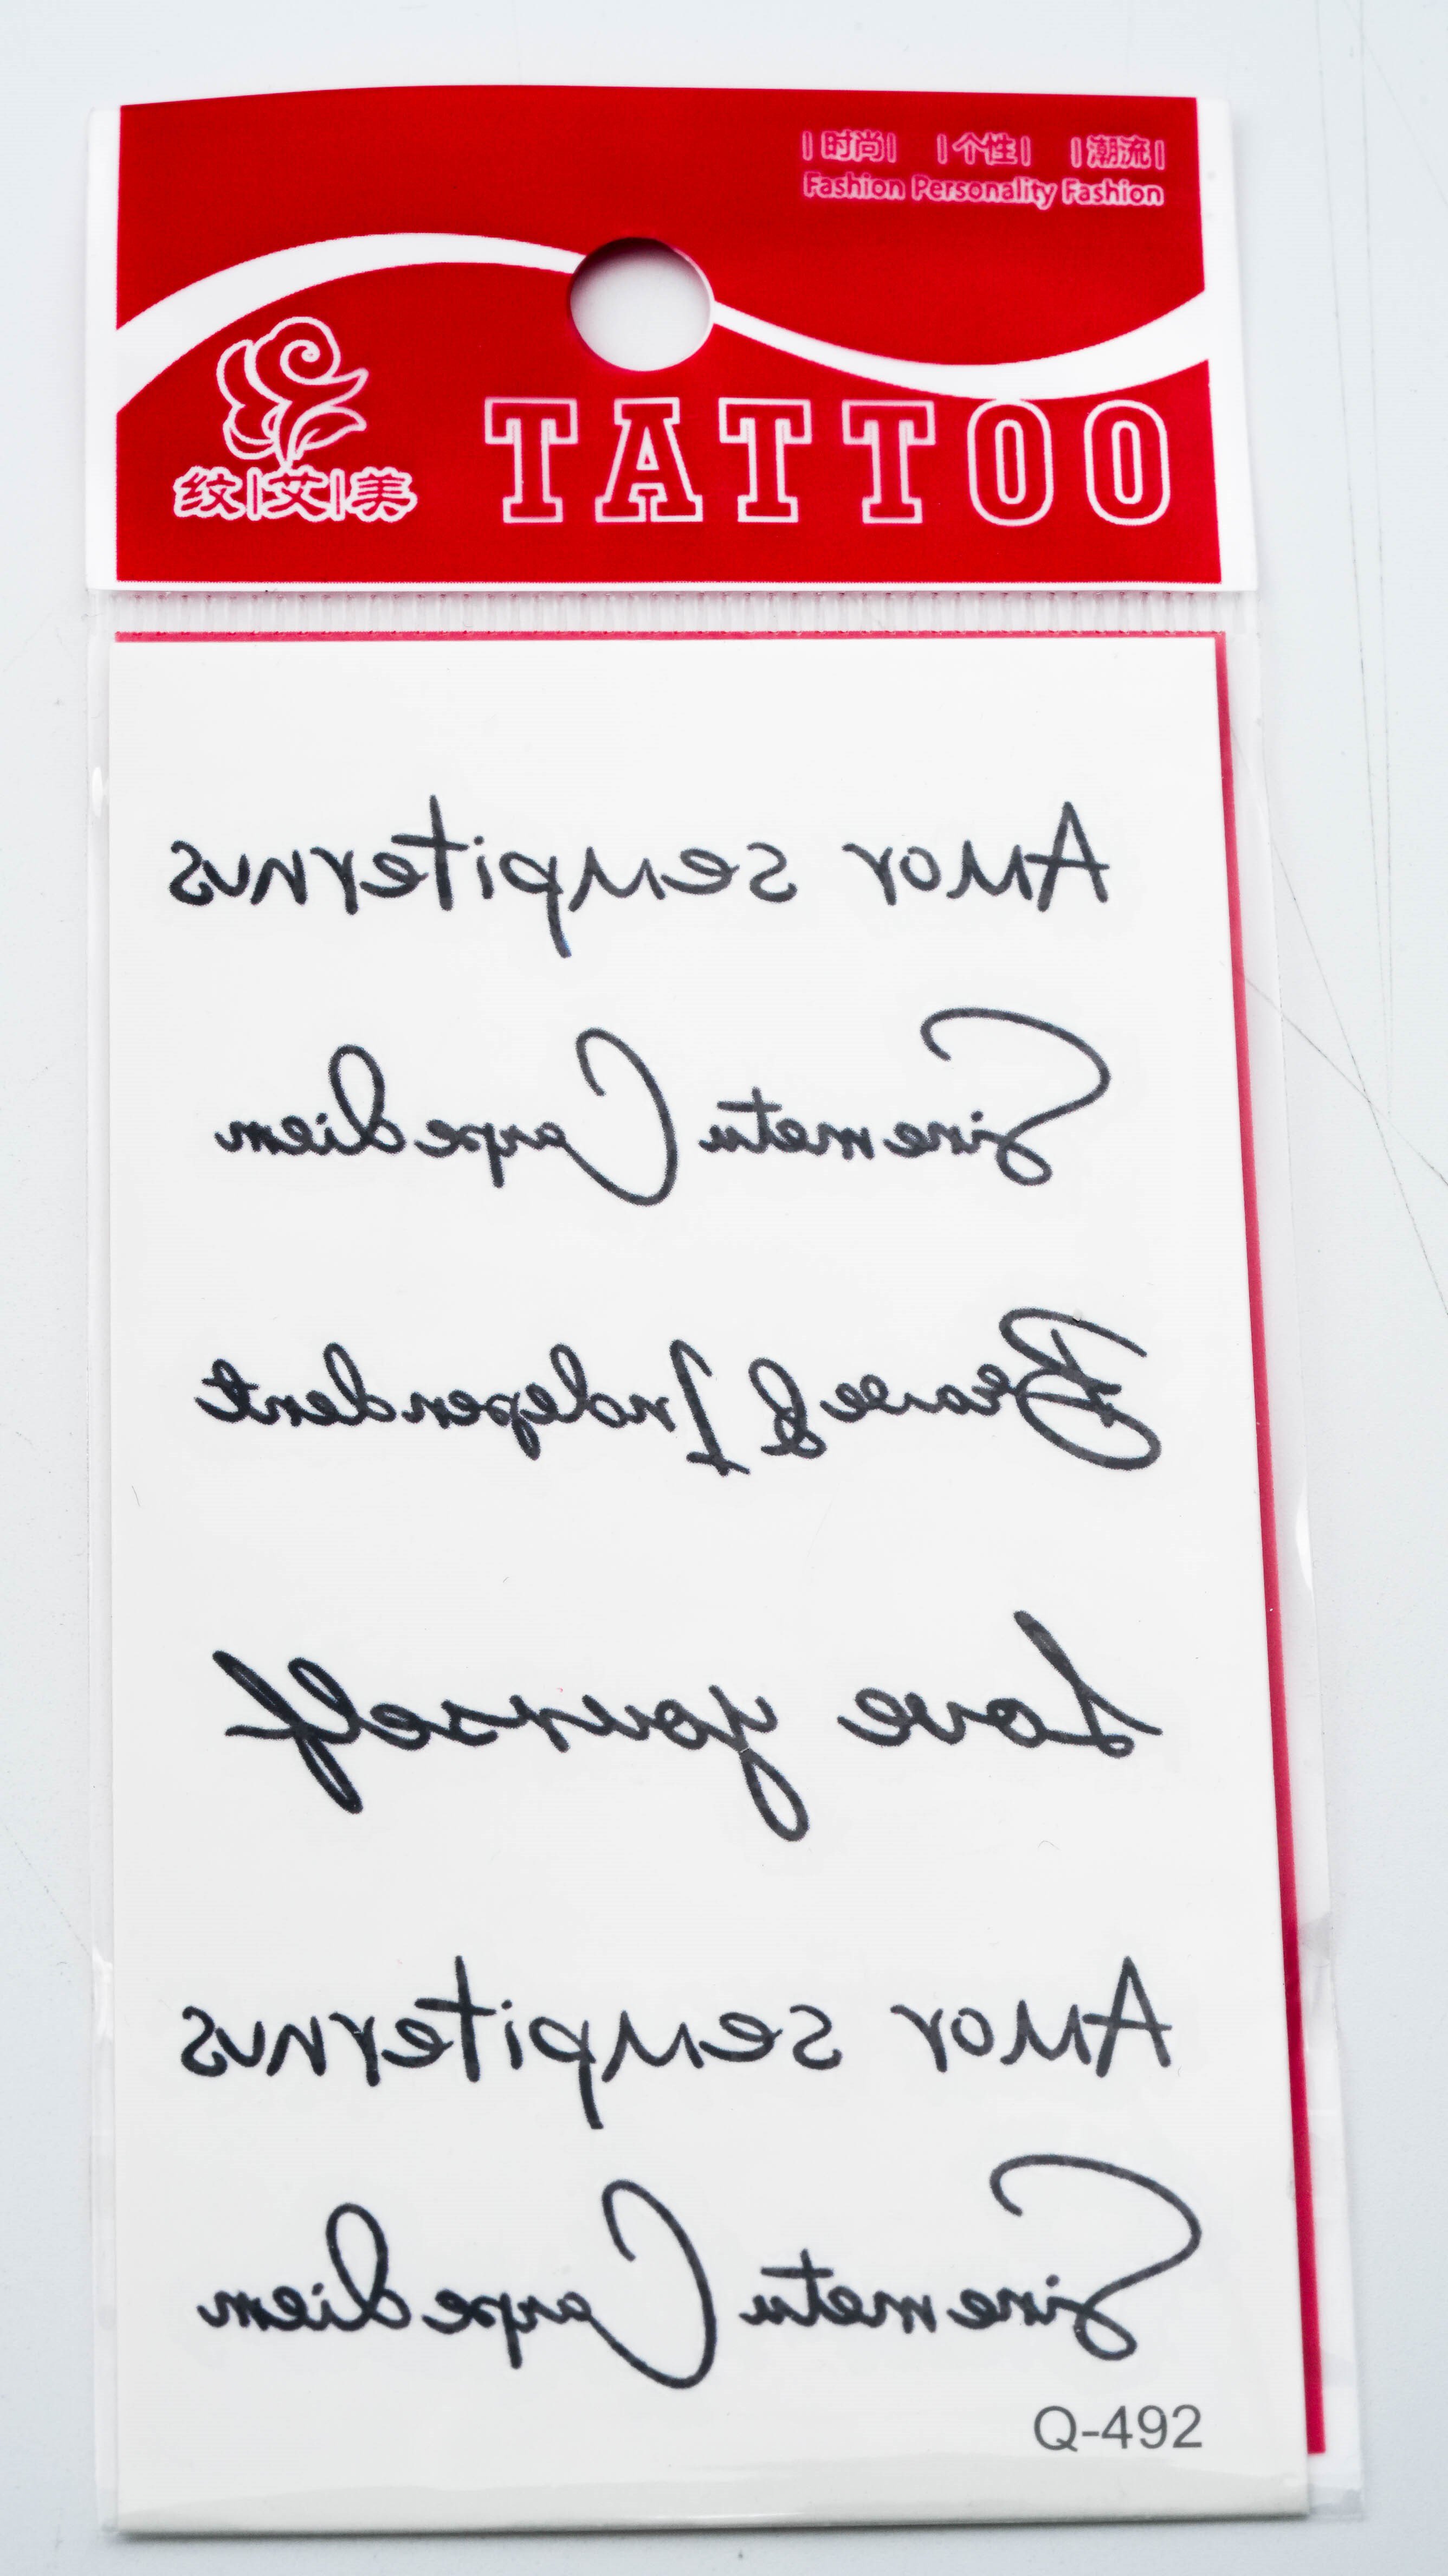 |时尚| |个性| |潮流|
Fashion Personality Fashion
纹|艾|美
TATTOO
Amor sempiternus
Sinemetu Carpediem
Brave & Independent
Love yourself
Amor sempiternus
Sinemetu Carpediem
Q-492